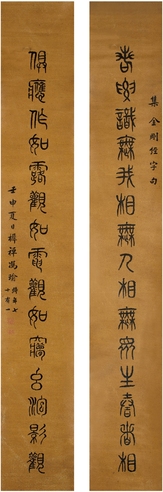 集金剛經字句
識無我相無人相無眾生壽者相
俱應作如露觀如電觀如夢幻泡影觀
壬申夏日
時年七
十有一